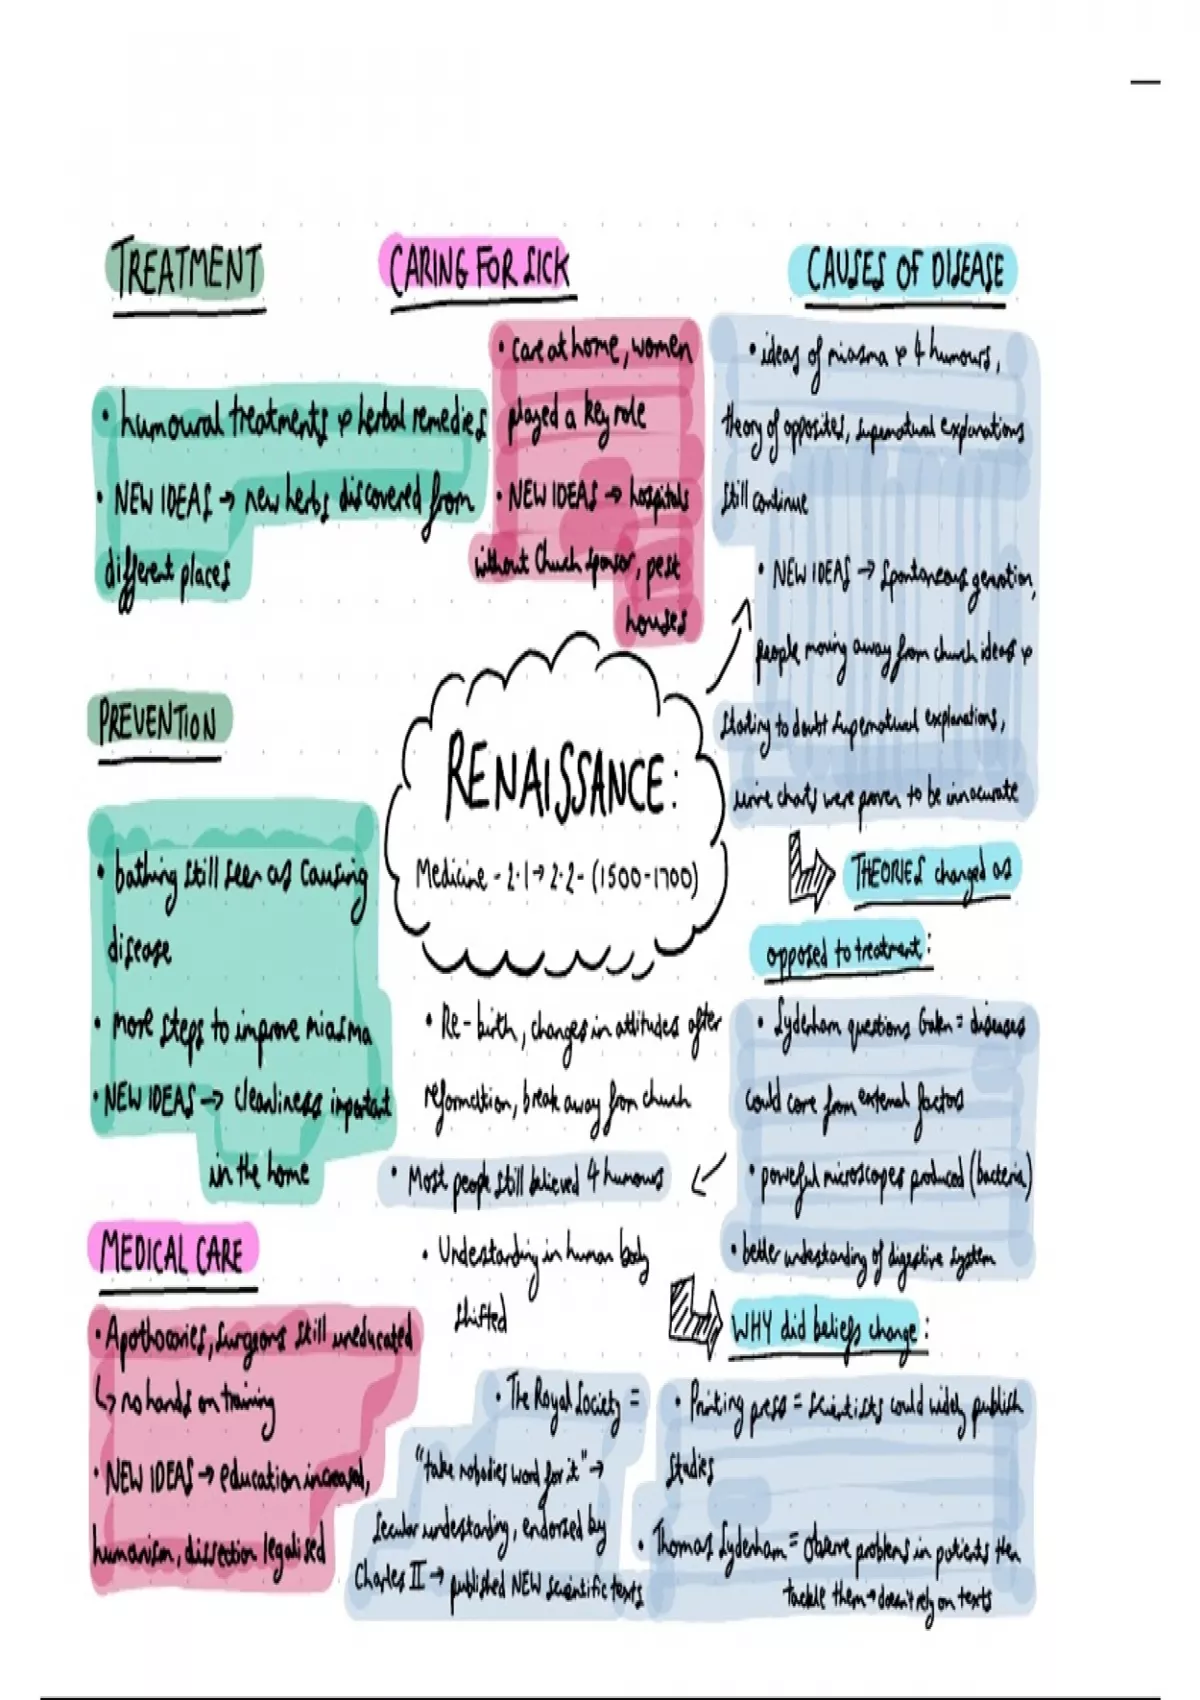 TREATMENT
• humoural treatments & herbal remedies
• NEW IDEAS → new herbs discovered from
different places
CARING FOR SICK
• care at home, women
played a key role
• NEW IDEAS → hospitals
without Church sponsor, pest
houses
CAUSES OF DISEASE
• ideas of miasma & 4 humours,
theory of opposites, supernatural explanations
still continue
• NEW IDEAS → spontaneous genration,
people moving away from church ideas &
starting to doubt supernatural explanations,
urine charts were proven to be innacurate
THEORIES changed as
opposed to treatment:
• Sydenham questions Galen = diseases
could come from external factors
• powerful microscopes produced (bacteria)
• better understanding of digestive system
WHY did beliefs change:
• Printing press = scientists could widely publish
studies
• Thomas Sydenham = observe problems in patients then
tackle them → doesn't rely on texts
RENAISSANCE:
Medicine - 2.1 → 2.2 - (1500-1700)
• Re-birth, changes in attitudes after
reformation, break away from church
• Most people still believed 4 humours
• Understanding in human body
shifted
• The Royal Society =
"take nobodies word for it" →
secular understanding, endorsed by
Charles II → published NEW scientific texts
PREVENTION
• bathing still seen as causing
disease
• more steps to improve miasma
• NEW IDEAS → cleanliness important
in the home
MEDICAL CARE
• Apothocaries, surgeons still uneducated
↳ no hands on training
• NEW IDEAS → education increased,
humanism, dissection legalised